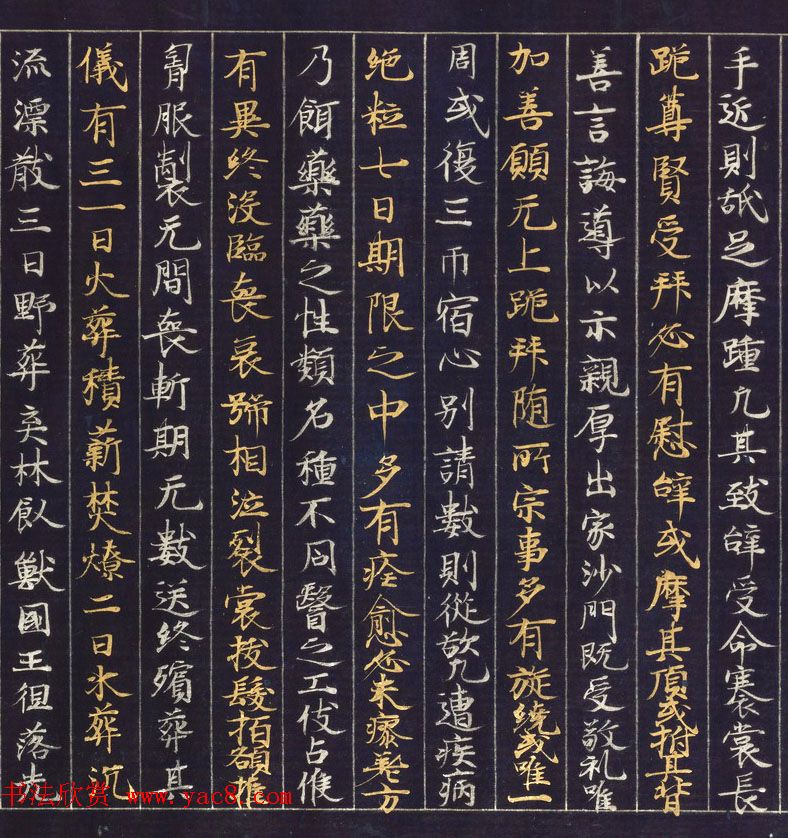 手近則舐足摩踵凡其致辞受命褰裳長
跪尊賢受拜必有慰辞或摩其頂或拊其背
善言誨導以示親厚出家沙門既受敬礼唯
加善願无上跪拜随所宗事多有旋繞或唯一
周或復三帀宿心別請數則從欲凡遭疾病
絶粒七日期限之中多有痊愈必未瘳差方
乃餌藥藥之性類名種不同醫之工伎占候
有異終没臨喪哀号相泣裂裳拔髮拍額椎
胷服製无間喪斬期无數送終殯葬其
儀有三一曰火葬積薪焚燎二曰水葬沉
流漂散三曰野葬弃林飤獸國王徂落先
书法欣赏 www.yac8.com